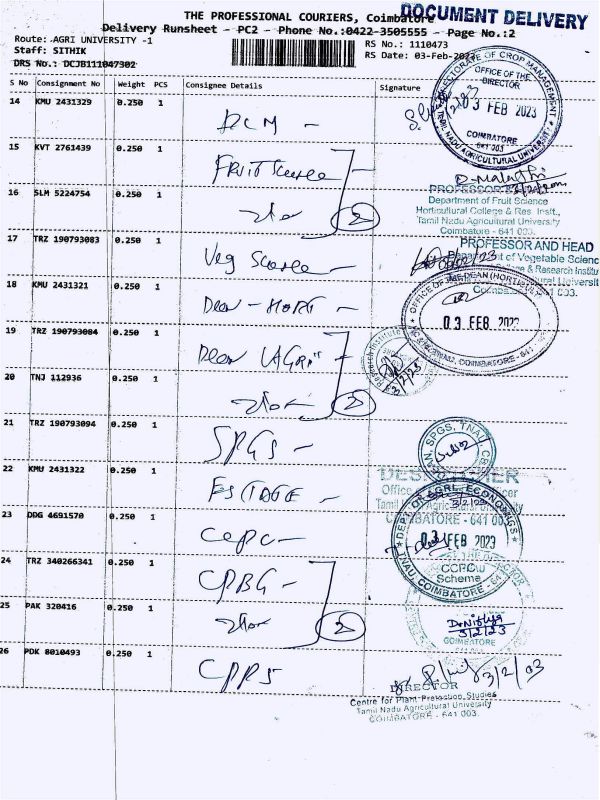 THE PROFESSIONAL COURIERS, Coimbatore
DOCUMENT DELIVERY
Delivery Runsheet - PC2 - Phone No.:0422-3505555 - Page No.:2
Route: AGRI UNIVERSITY -1
RS No.: 1110473
Staff: SITHIK
RS Date: 03-Feb-2023
DRS No.: DCJB111047302
S No Consignment No Weight PCS Consignee Details Signature
14 KMU 2431329 0.250 1
DCM -
DIRECTORATE OF CROP MANAGEMENT
OFFICE OF THE
DIRECTOR
03 FEB 2023
COIMBATORE
641 003
TAMIL NADU AGRICULTURAL UNIVERSITY
15 KVT 2761439 0.250 1
FRUIT Science
D. Malathi
3/2/2023
16 SLM 5224754 0.250 1
2
Department of Fruit Science
Horticultural College & Res. Instt.,
Tamil Nadu Agricultural University
Coimbatore - 641 003.
17 TRZ 190793083 0.250 1
Veg Science -
PROFESSOR AND HEAD
Department of Vegetable Science
18 KMU 2431321 0.250 1
Dean - HORT -
03 FEB 2023
COIMBATORE - 641
19 TRZ 190793084 0.250 1
Dean "AGRI" -
3/2/23
20 TNJ 112936 0.250 1
2
21 TRZ 190793094 0.250 1
SPGS -
DEAN, SPGS, TNAU, CBE
22 KMU 2431322 0.250 1
COIMBATORE - 641 003
23 DDG 4691570 0.250 1
DEPT OF AGRL. ECONOMICS
03 FEB 2023
TNAU, COIMBATORE - 64
24 TRZ 340266341 0.250 1
CPBG -
CCPCW
Scheme
25 PAK 320416 0.250 1
2
3/2/23
COIMBATORE
26 PDK 8010493 0.250 1
CPPS
3/2/23
DIRECTOR
Centre for Plant Protection Studies
Tamil Nadu Agricultural University
COIMBATORE - 641 003.